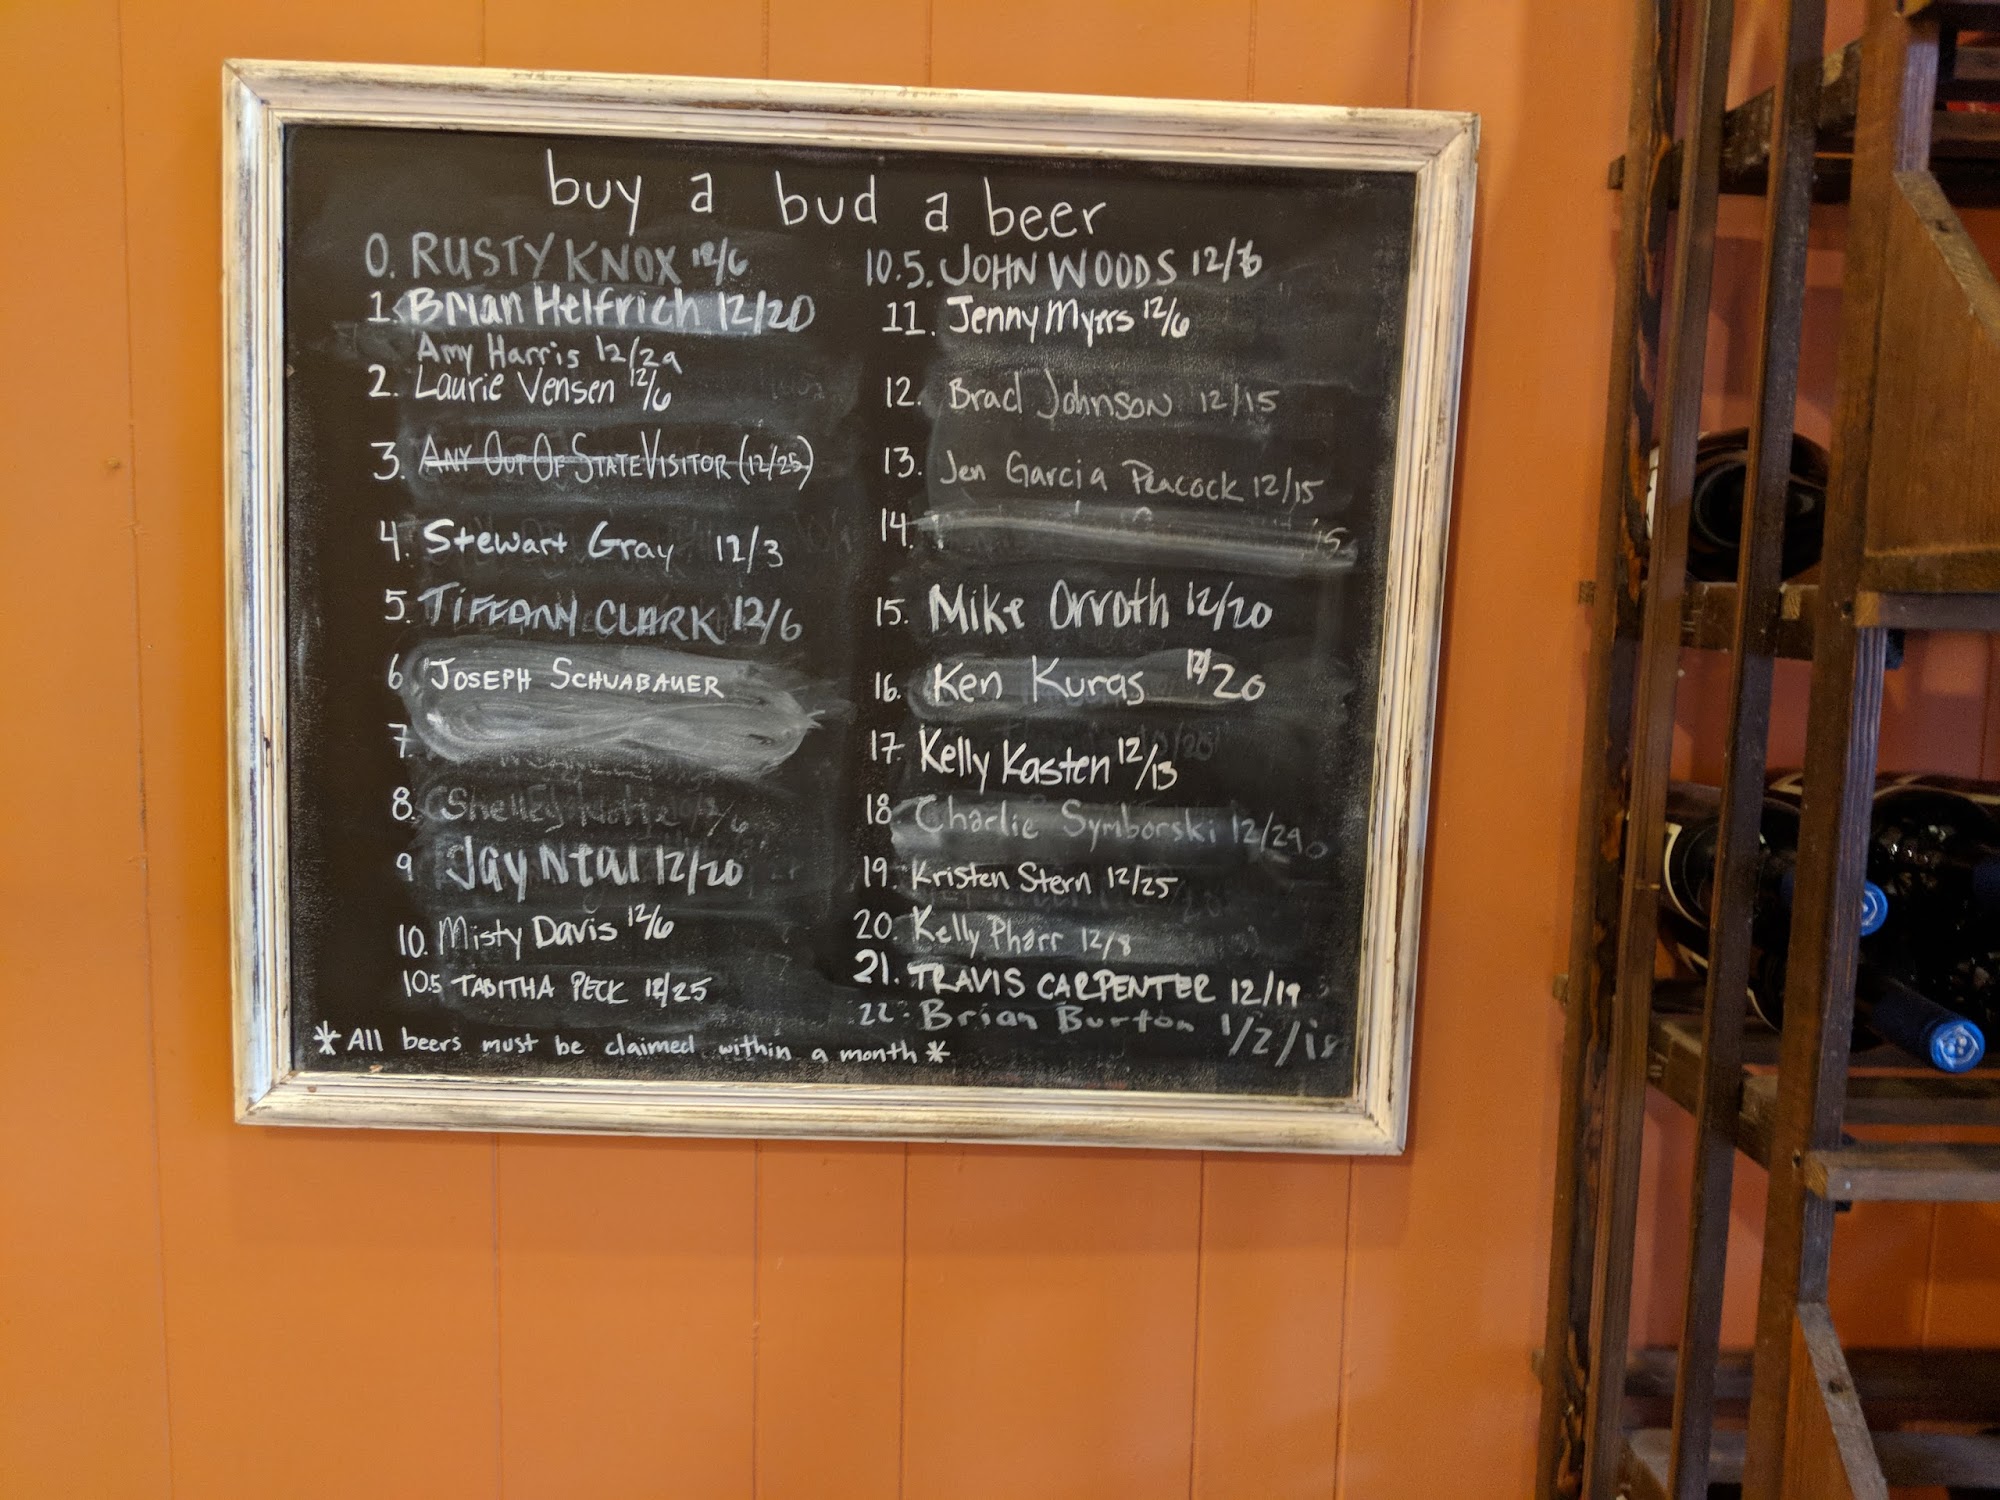 buy a bud a beer
0. RUSTY KNOX 12/6
1. Brian Helfrich 12/20
Amy Harris 12/29
2. Laurie Vensen 12/6
3. ANY OUT OF STATE VISITOR (12/25)
4. Stewart Gray 12/3
5. TIFFANY CLARK 12/6
6 JOSEPH SCHUABAUER
7.
8. Shelley 12/6
9 Jay Ntal 12/20
10. Misty Davis 12/6
10.5 TABITHA PECK 12/25
10.5. JOHN WOODS 12/6
11. Jenny Myers 12/6
12. Brad Johnson 12/15
13. Jen Garcia Peacock 12/15
14. 15
15. Mike Orroth 12/20
16. Ken Kuras 12/20
17. Kelly Kasten 12/13
18. Charlie Symborski 12/29
19. Kristen Stern 12/25
20. Kelly Pharr 12/8
21. TRAVIS CARPENTER 12/19
22. Brian Burton 1/2/18
*All beers must be claimed within a month*